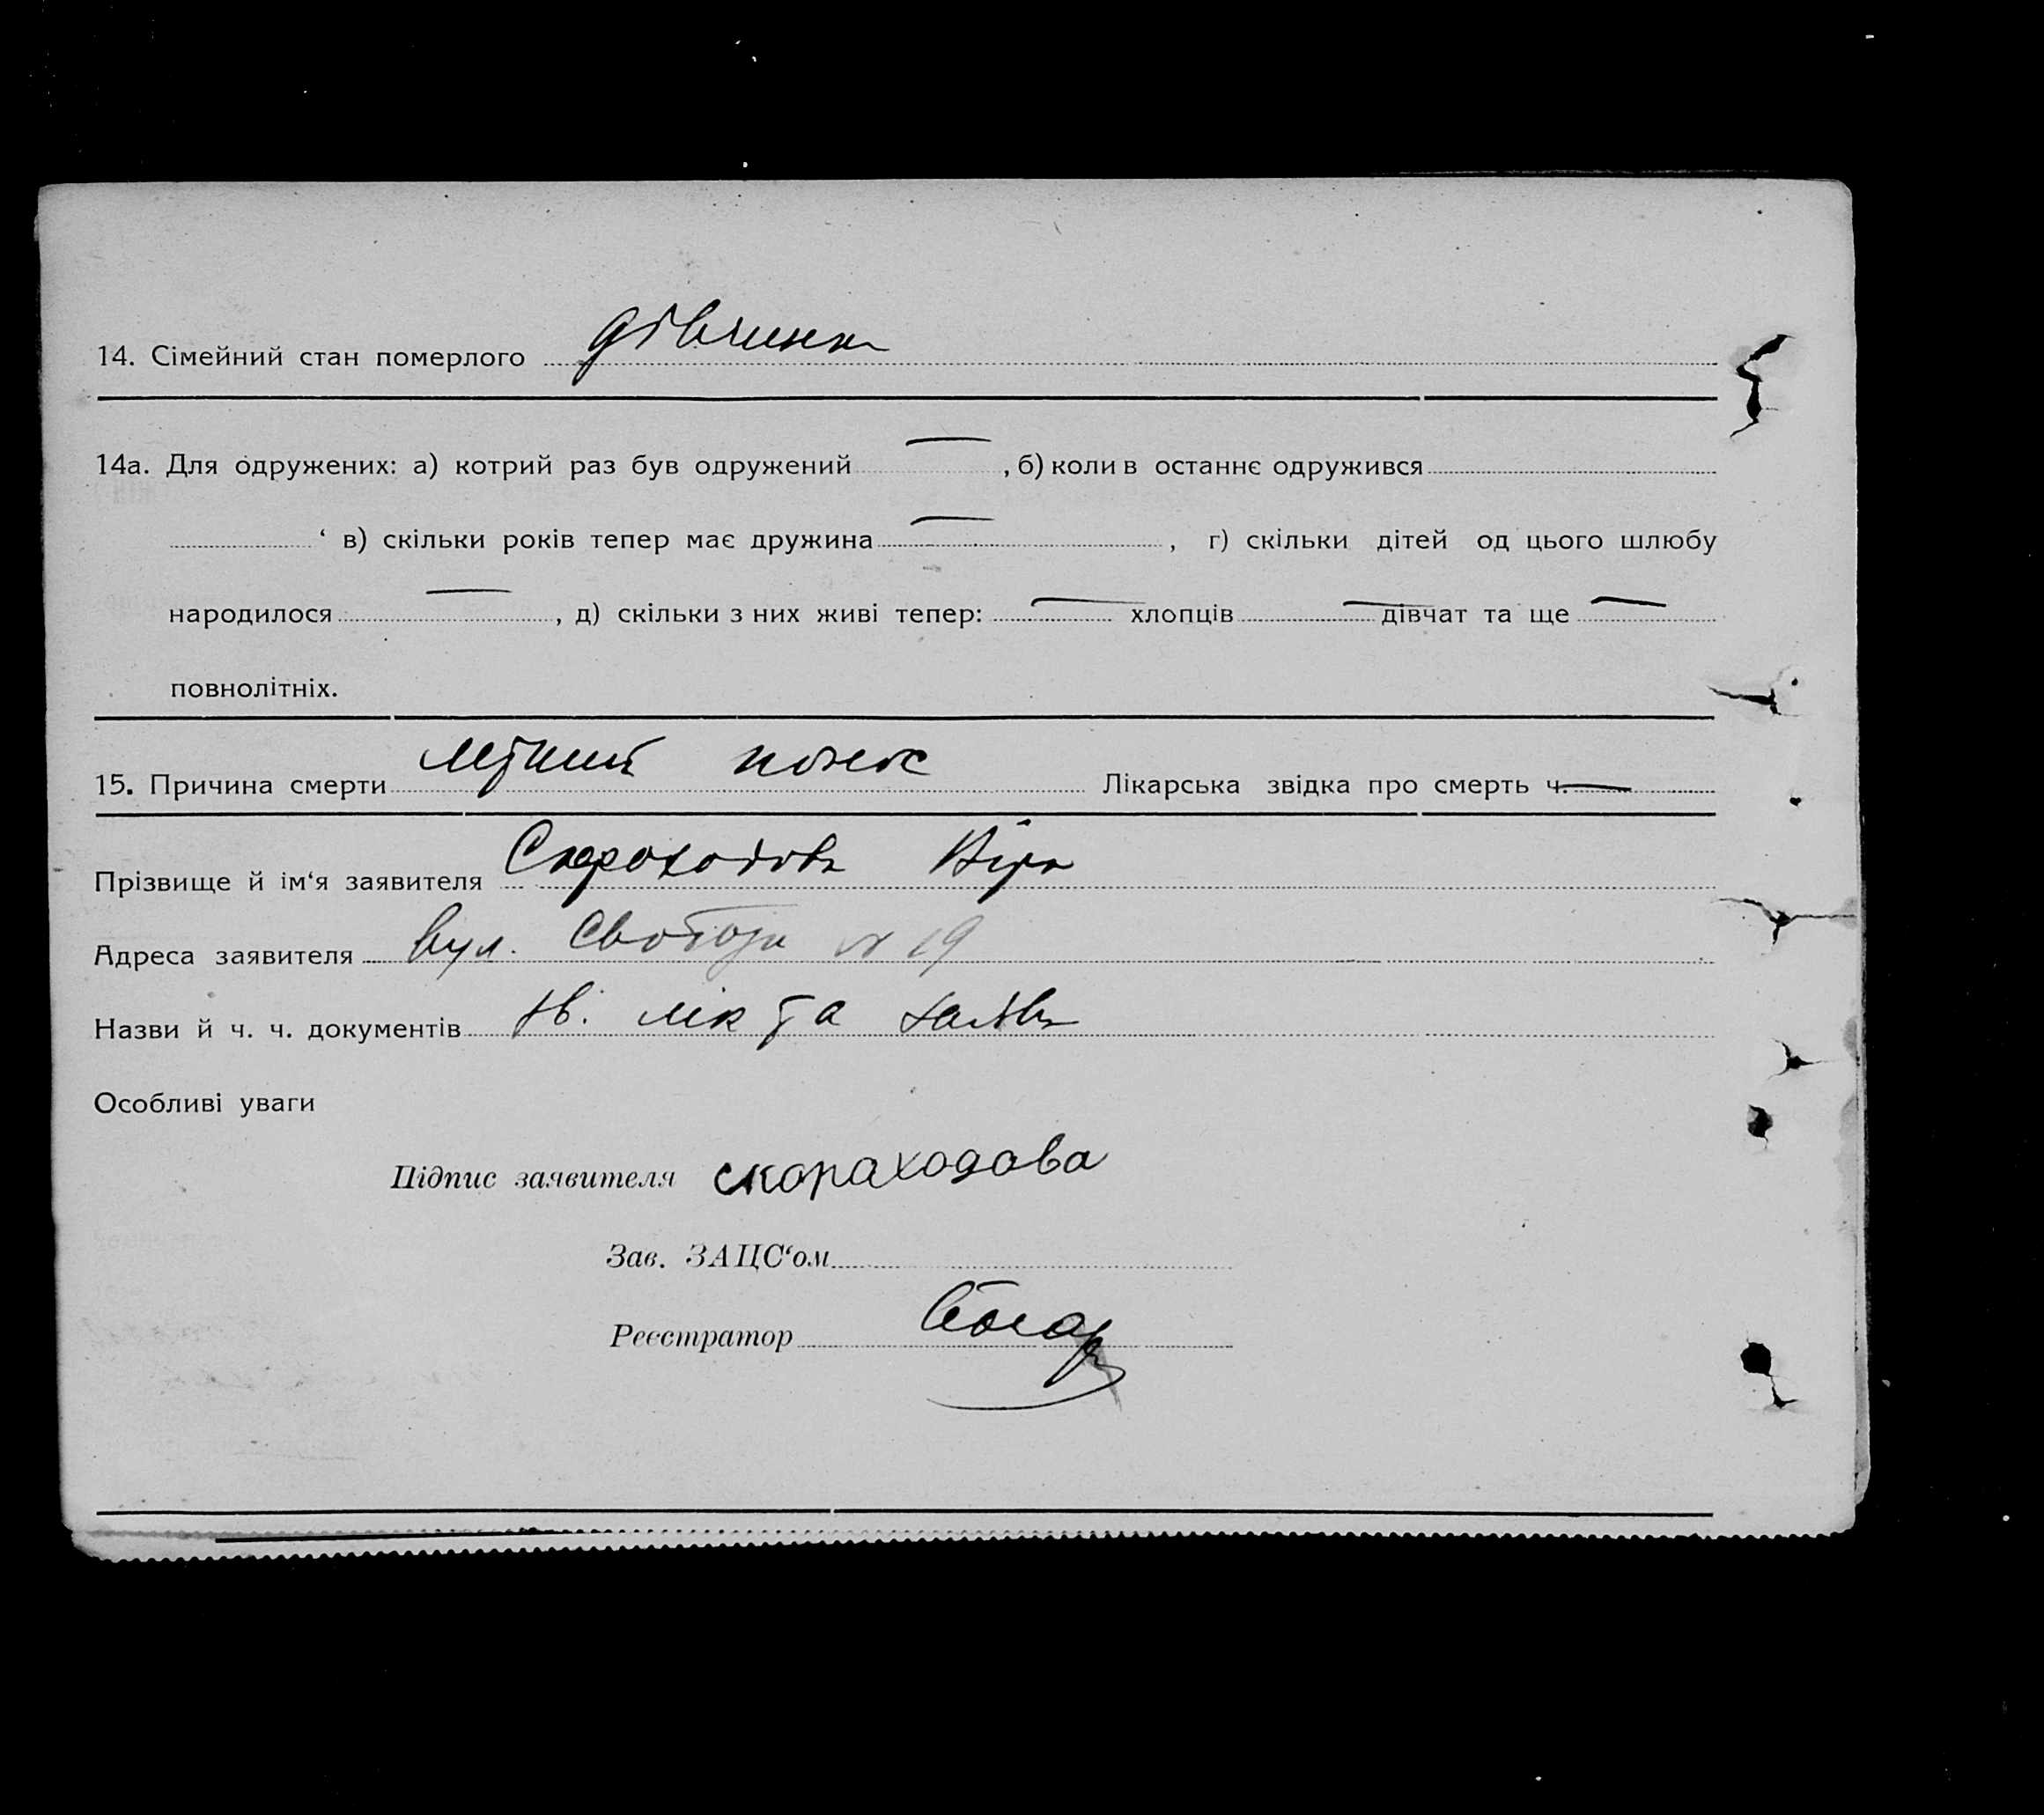 14. Сімейний стан померлого дівчинка
14а. Для одружених: а) котрий раз був одружений — , б) коли в останнє одружився
‘ в) скільки років тепер має дружина — , г) скільки дітей од цього шлюбу
народилося — , д) скільки з них живі тепер: — хлопців — дівчат та ще —
повнолітніх.
15. Причина смерти літній понос Лікарська звідка про смерть ч. —
Прізвище й ім‘я заявителя Скороходова Віра
Адреса заявителя вул. Свободи № 19
Назви й ч. ч. документів зв. лік та заява
Особливі уваги
Підпис заявителя скараходова
Зав. ЗАЦС‘ом
Реєстратор